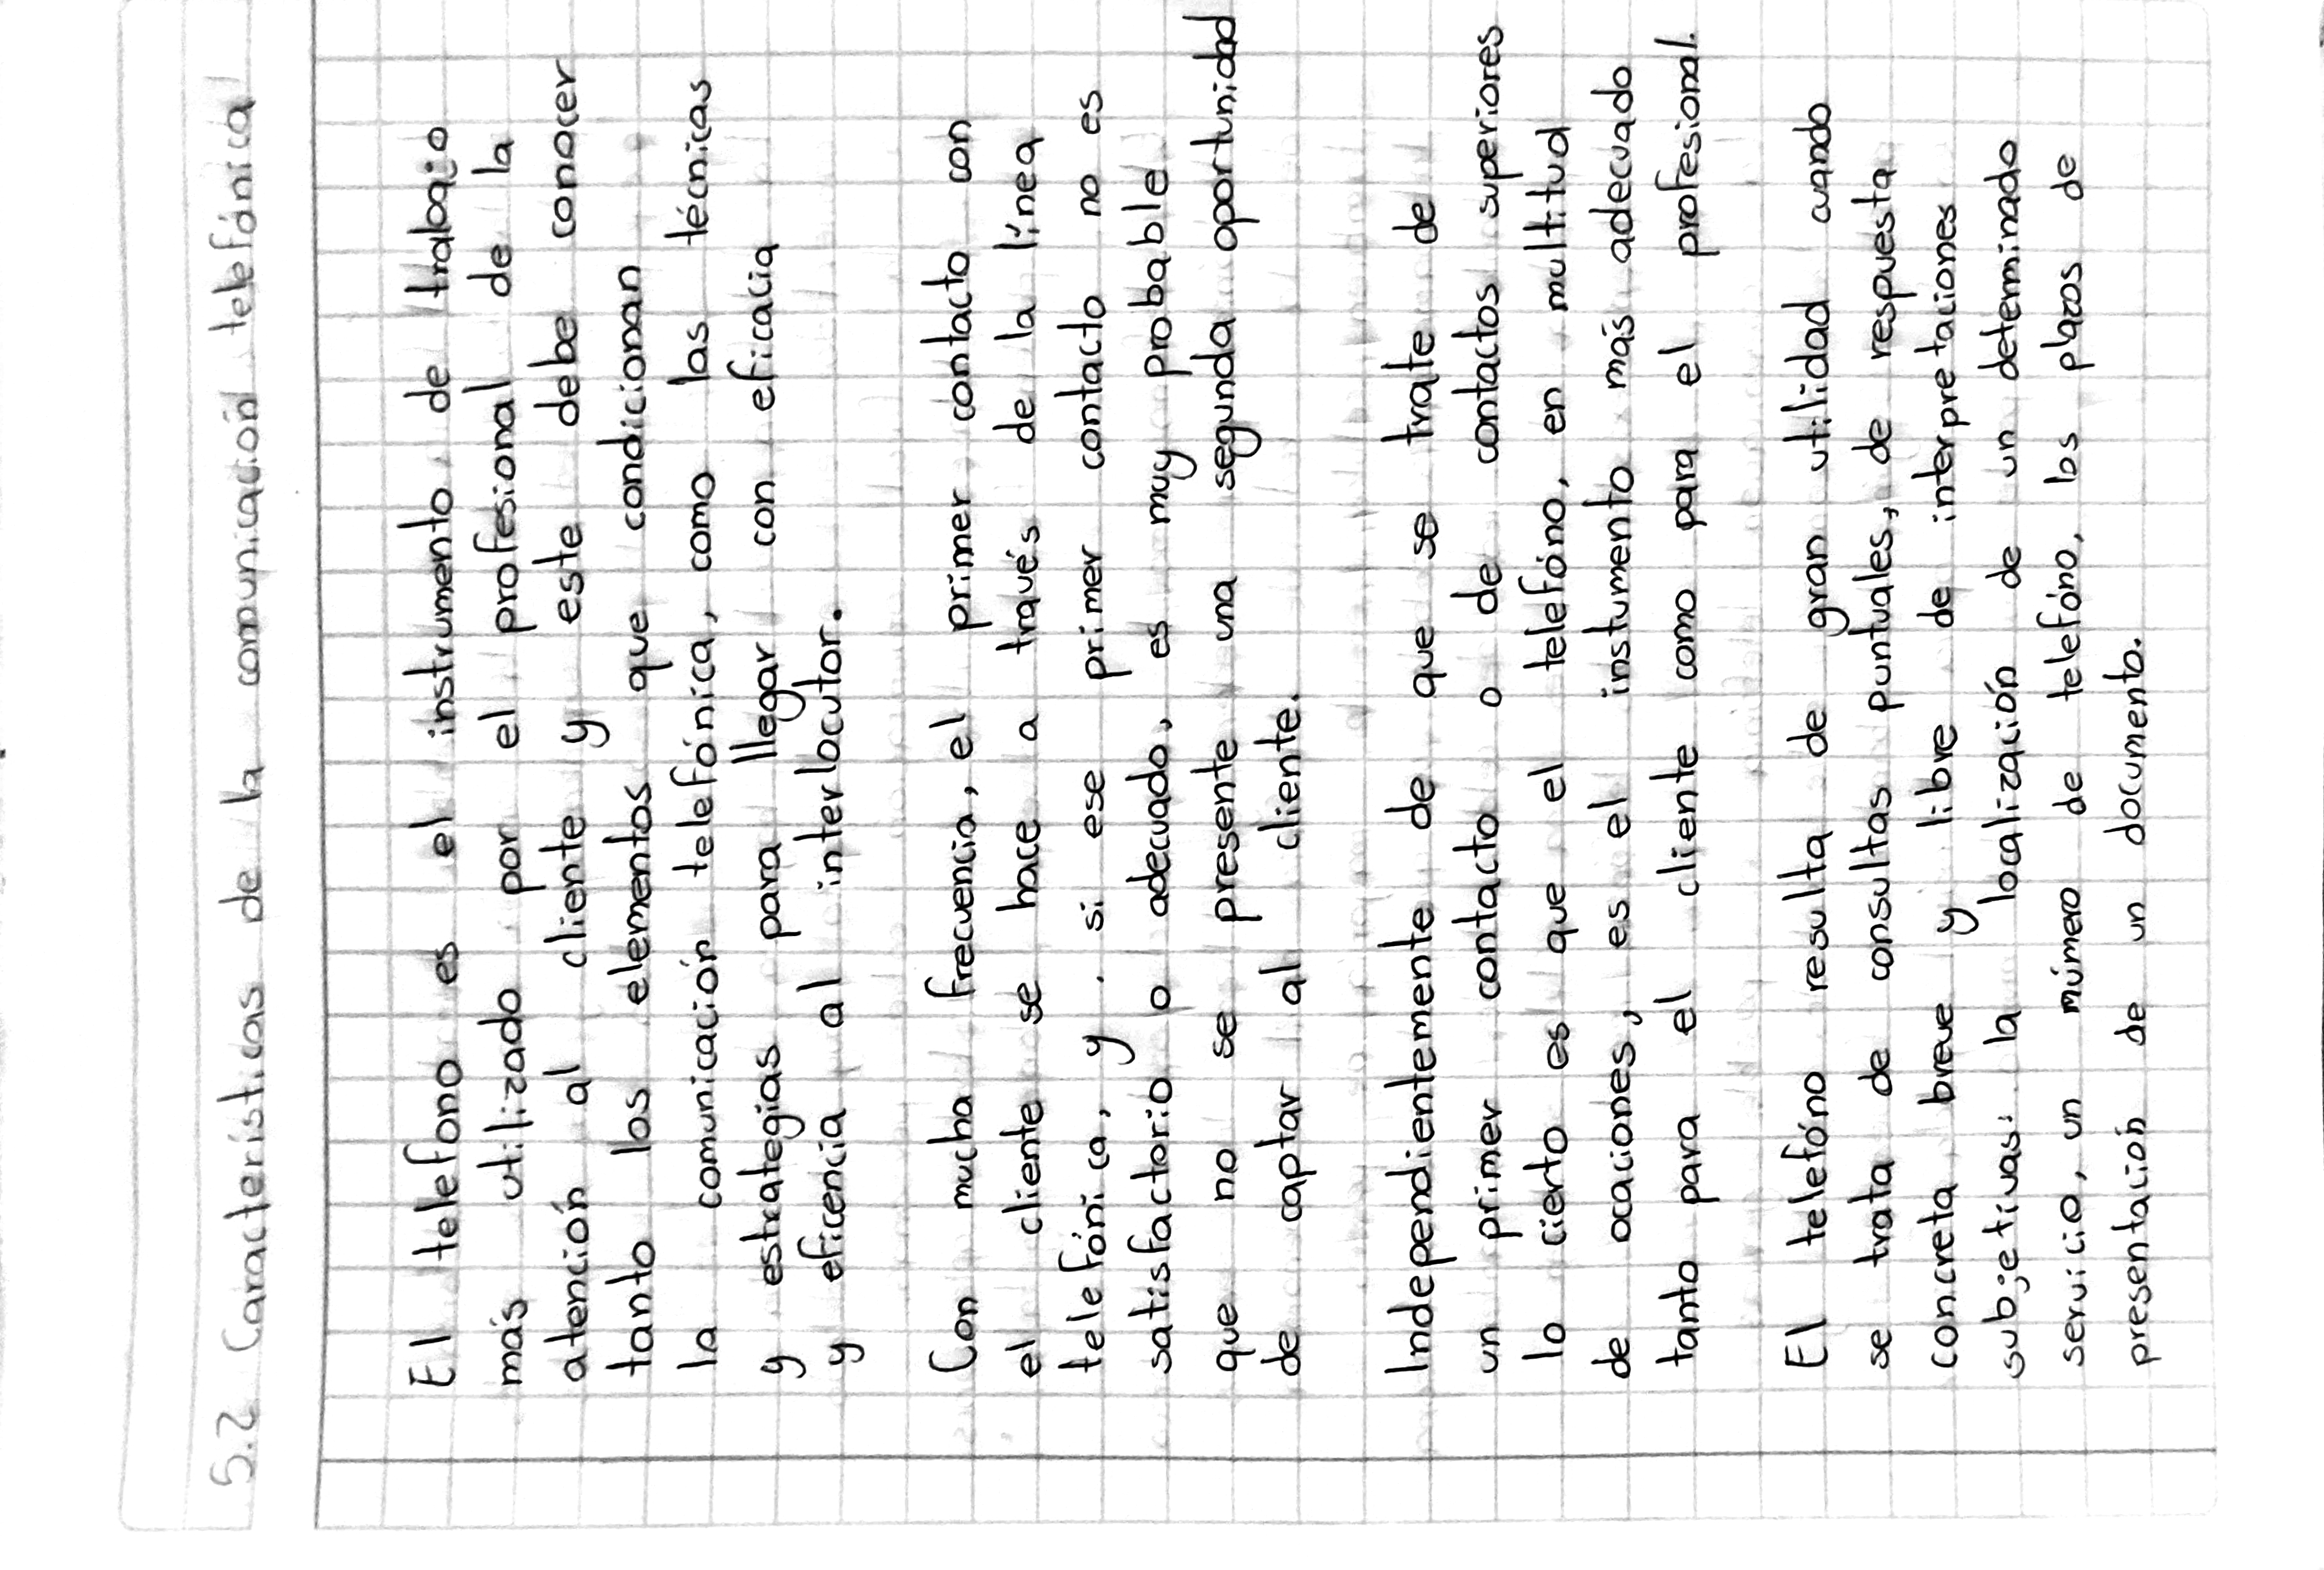 5.2 Características de la comunicación telefónica
El telefono es el instrumento de trabajo
más utilizado por el profesional de la
atención al cliente y este debe conocer
tanto los elementos que condicionan
la comunicación telefónica, como las técnicas
y estrategias para llegar con eficacia
y eficencia al interlocutor.
Con mucha frecuencia, el primer contacto con
el cliente se hace a través de la línea
telefónica, y . si ese primer contacto no es
satisfactorio o adecuado, es muy probable
que no se presente una segunda oportunidad
de captar al cliente.
Independientemente de que se trate de
un primer contacto o de contactos superiores
lo cierto es que el telefóno, en multitud
de ocaciones, es el instumento más adecuado
tanto para el cliente como para el profesional.
El telefóno resulta de gran utilidad cuando
se trata de consultas puntuales, de respuesta
concreta breve y libre de interpretaciones
subjetivas: la localización de un determinado
servicio, un número de telefóno, los plazos de
presentación de un documento.